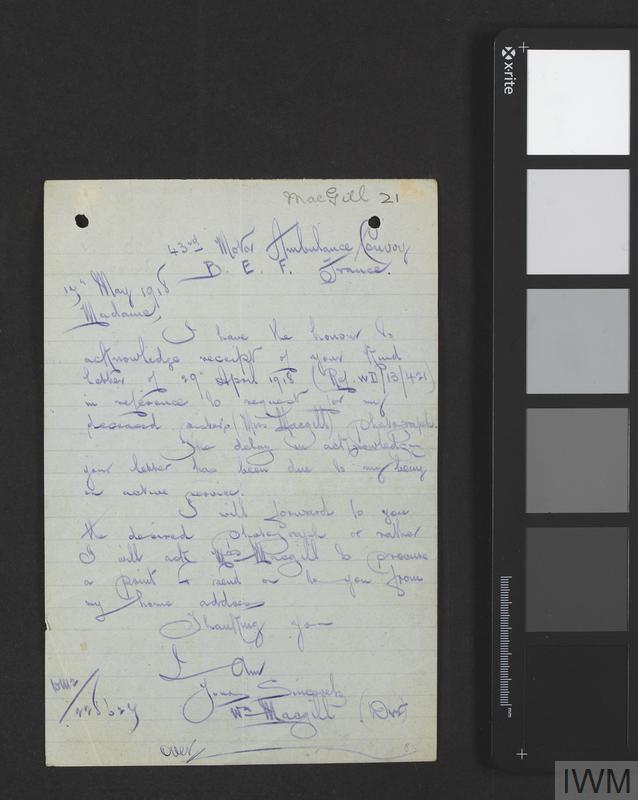 MacGill 21
43rd Motor Ambulance Convoy
B. E. F. France.
May 1918
Madame,
I have the honour to
acknowledge receipt of your kind
letter of 29th April 1918 (Ref. WD/13/421)
in reference to request for my
deceased sisters (Miss Macgill) photograph.
The delay in acknowledging
your letter has been due to my being
on active service.
I will forward to you
the desired photograph or rather
I will ask Mrs Macgill to procure
a print & send on to you from
my home address
Thanking you
I am
Yours Sincerely
Wm Macgill (Dvr)
over
x·rite
mm
IWM